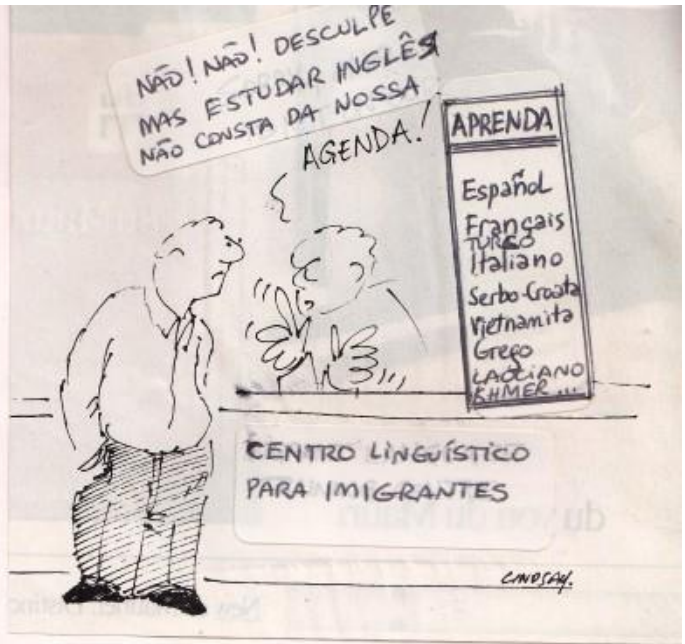 NÃO! NÃO! DESCULPE
MAS ESTUDAR INGLÊS
NÃO CONSTA DA NOSSA
AGENDA!
APRENDA
Español
Français
TURCO
Italiano
Serbo-Croata
Vietnamita
Grego
LAOCIANO
KHMER...
CENTRO LINGUÍSTICO
PARA IMIGRANTES
LINDSAY.